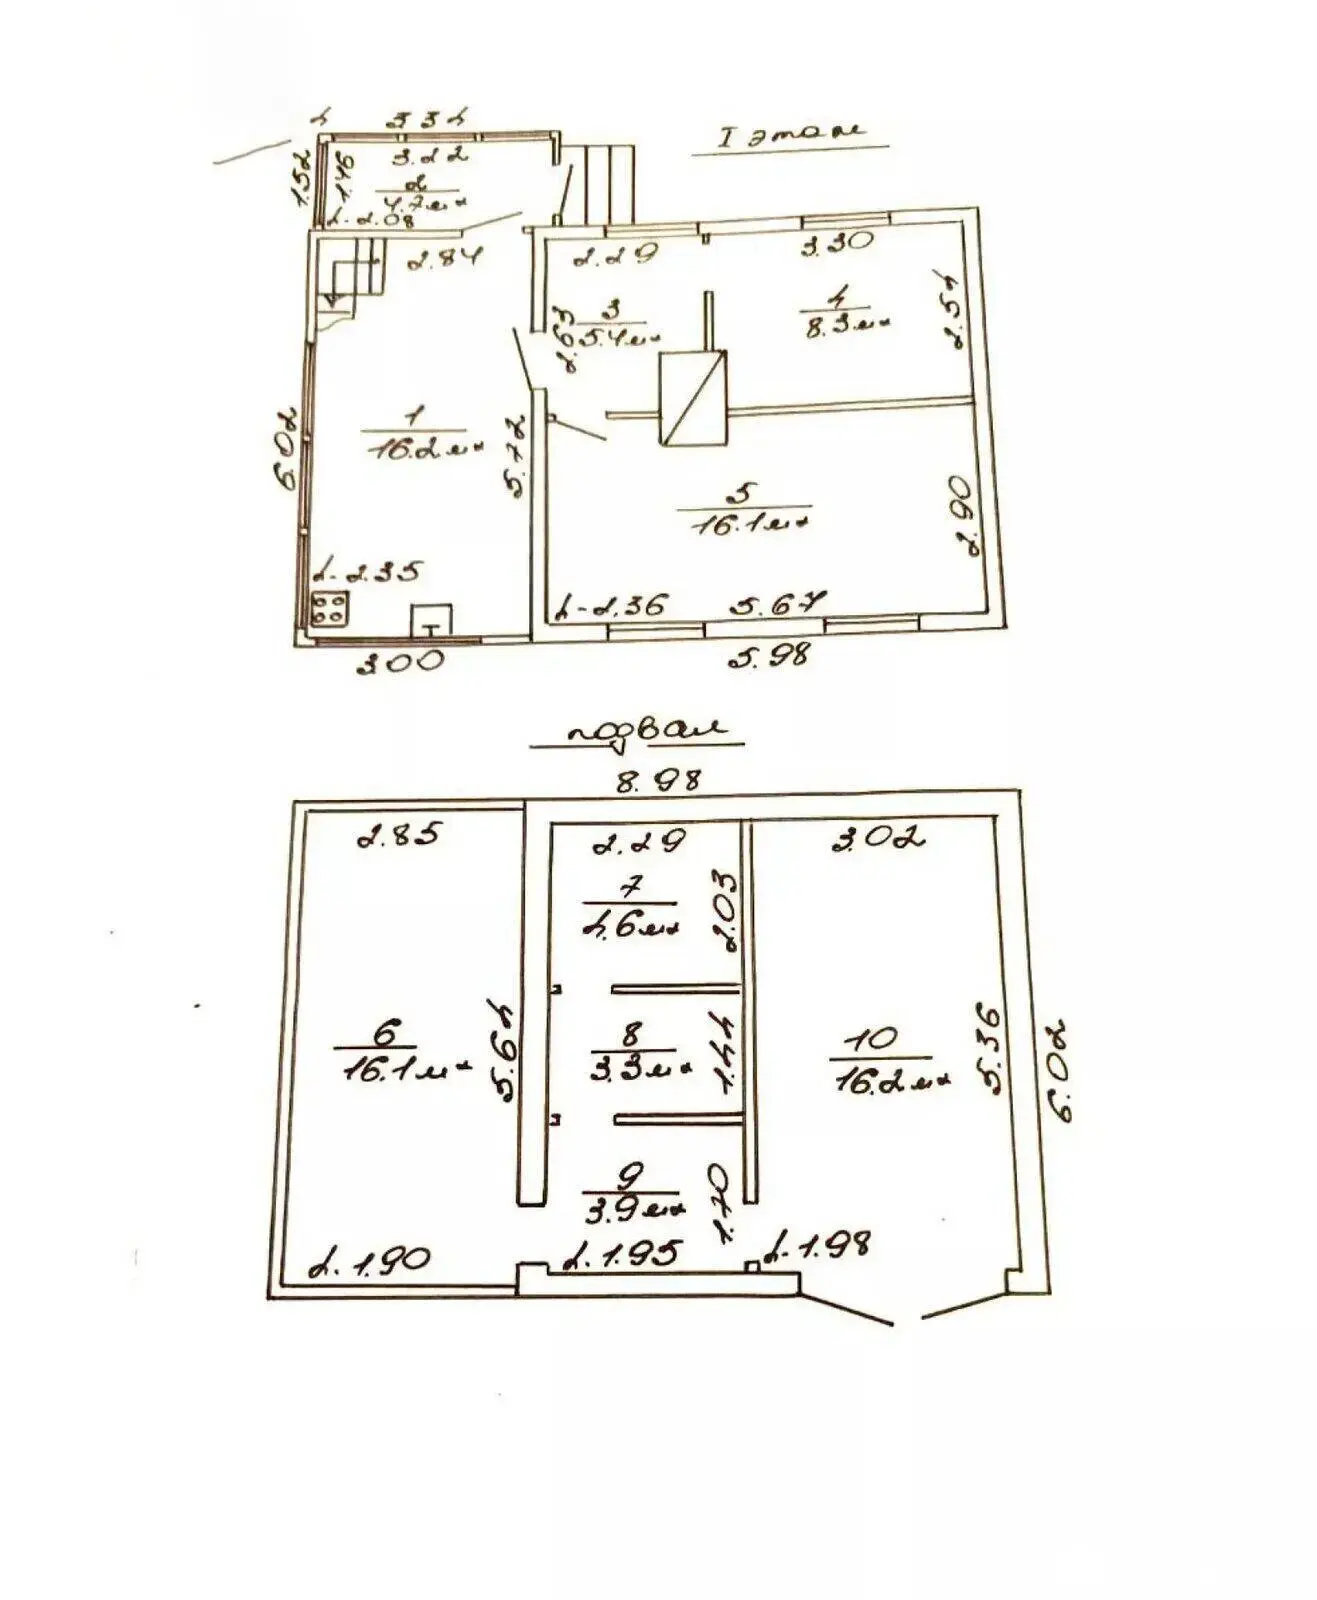 3.34
I этаж
3.22
1.52
1.46
2
4.7м²
h-2.08
2.84
2.29
3.30
3
5.4м²
2.63
4
8.3м²
2.54
1
16.2м²
6.02
5.72
5
16.1м²
2.90
h-2.35
h-2.36
5.67
3.00
5.98
подвал
8.98
2.85
2.29
3.02
7
4.6м²
2.03
6
16.1м²
5.64
8
3.3м²
1.44
10
16.2м²
5.36
6.02
9
3.9м²
1.70
h.1.90
h.1.95
h-1.98